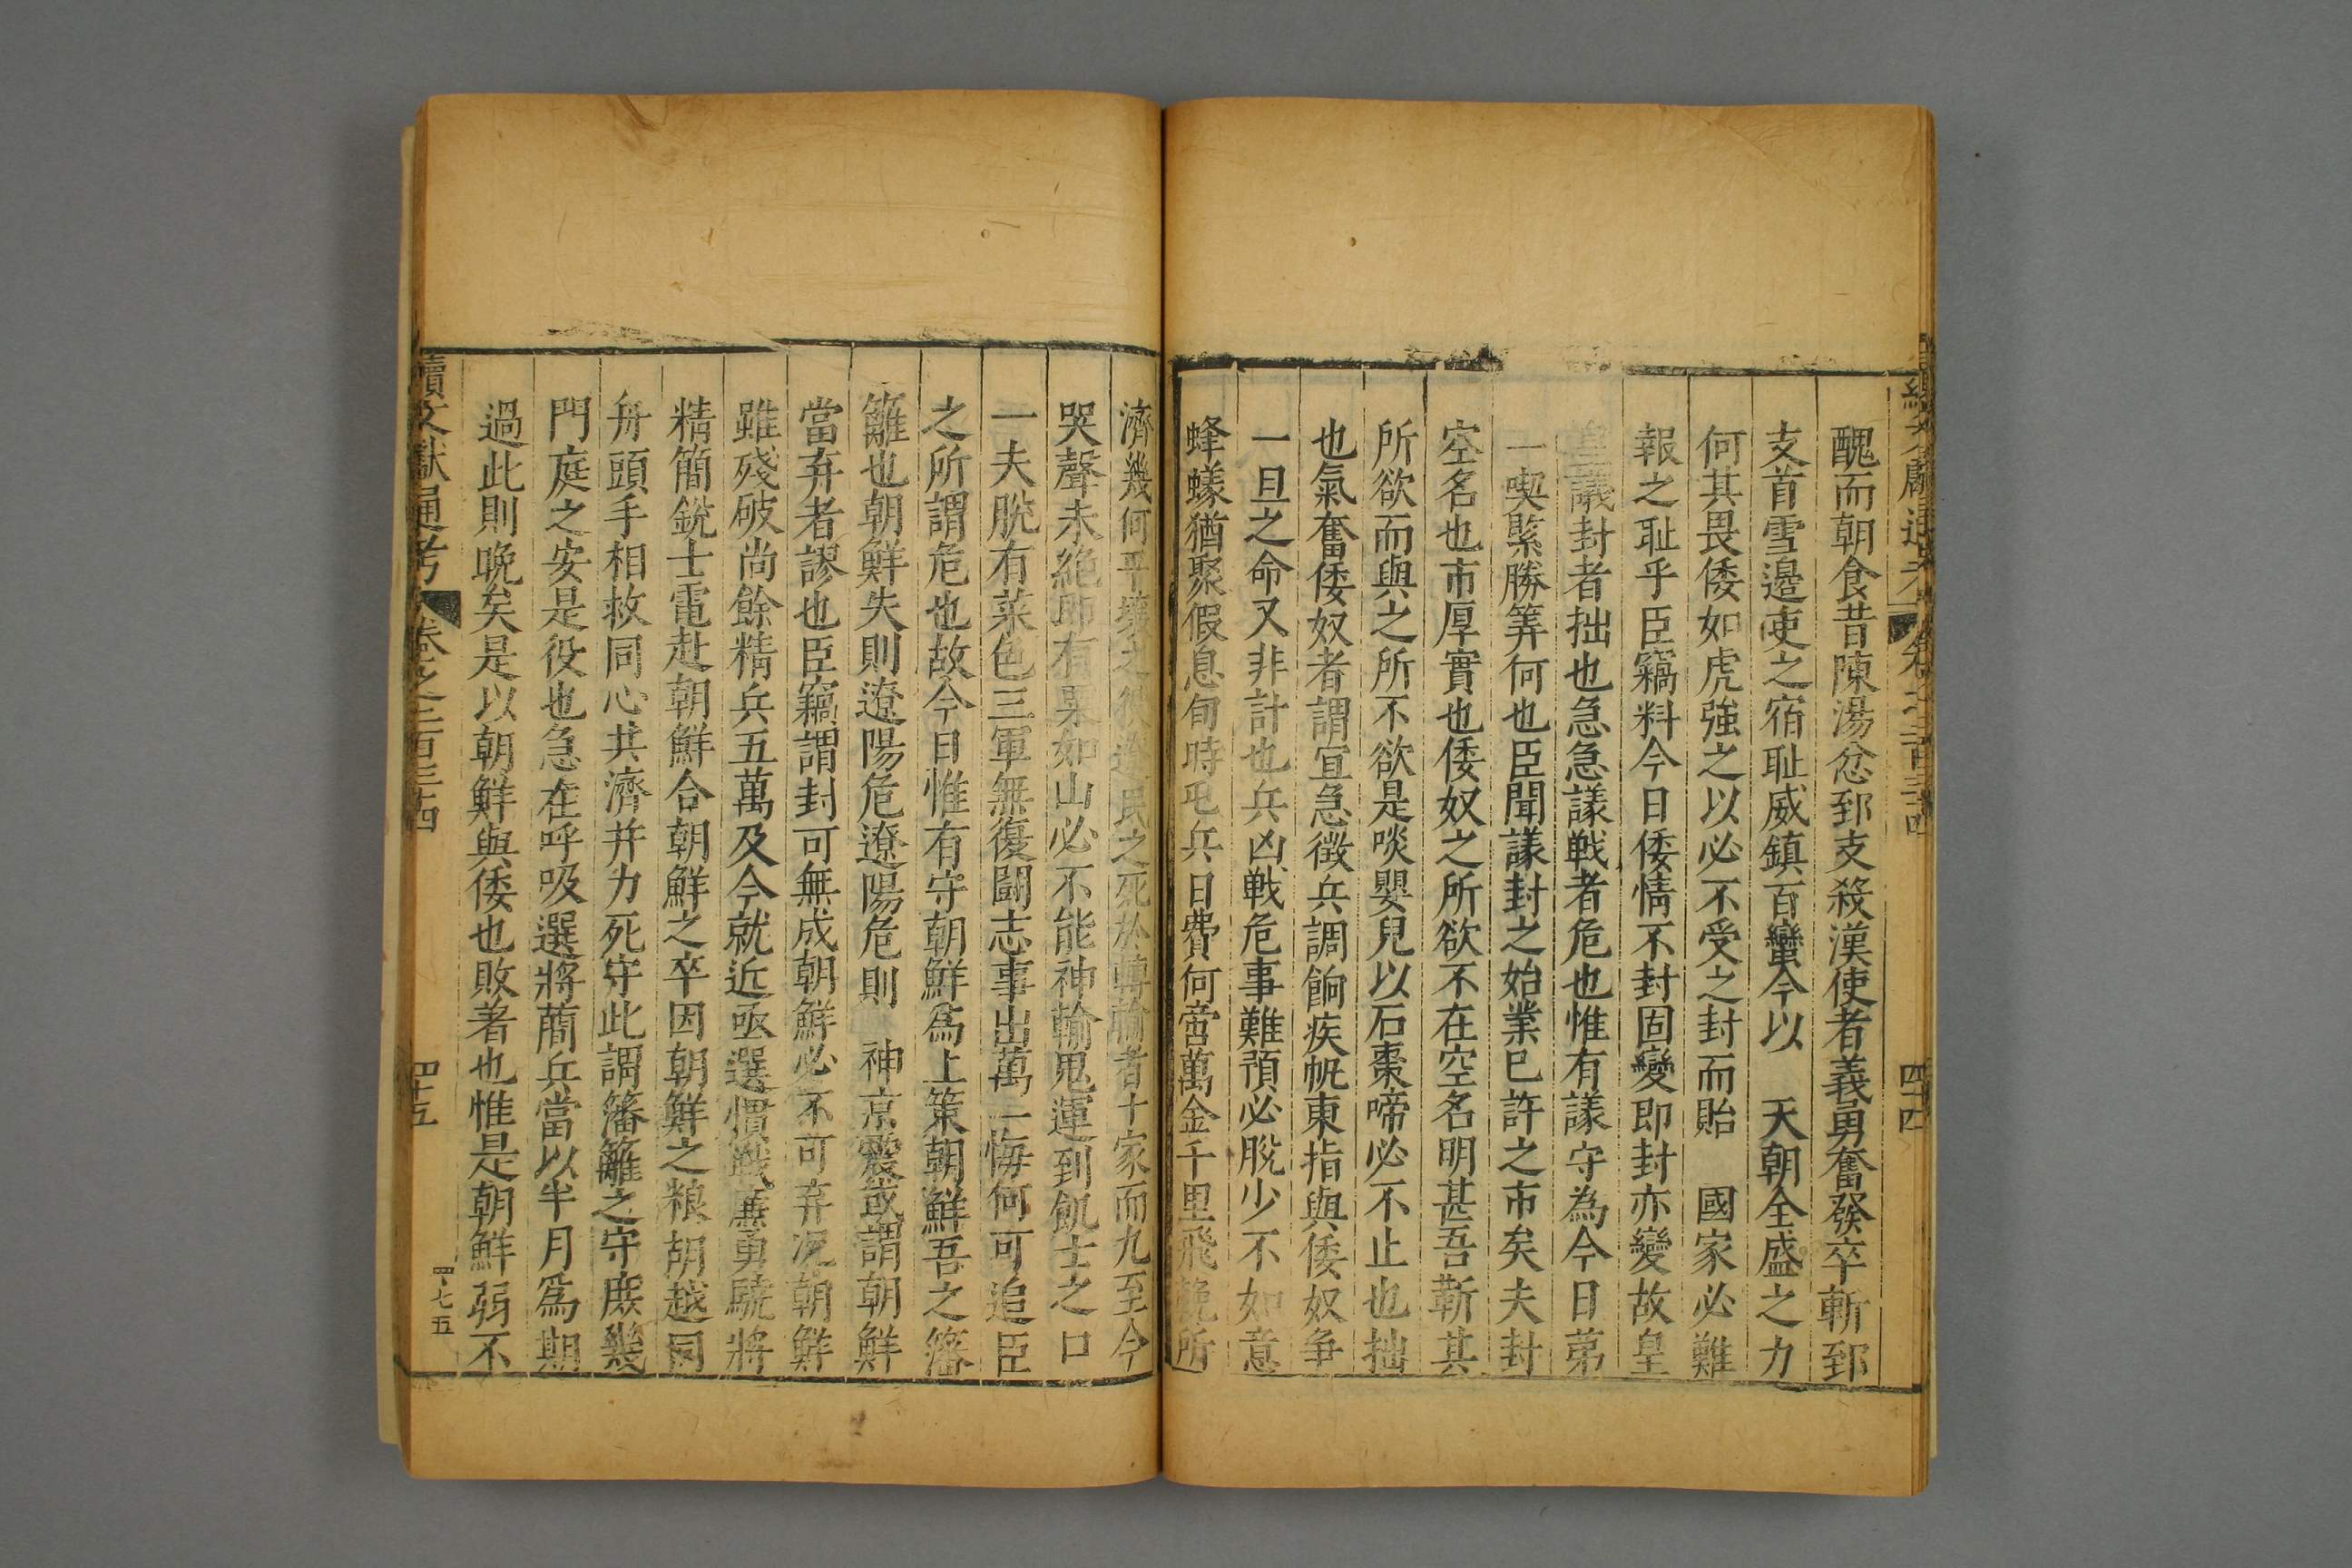 續文獻通考 卷之二百三十四 四十四
醜而朝食昔陳湯忿郅支殺漢使者義勇奮發卒斬郅
支首雪邊吏之宿恥威鎮百蠻今以 天朝全盛之力
何其畏倭如虎強之以必不受之封而貽 國家必難
報之耻乎臣竊料今日倭情不封固變即封亦變故皇
皇議封者拙也急急議戰者危也惟有議守為今日第
一喫緊勝筭何也臣聞議封之始業已許之市矣夫封
空名也市厚實也倭奴之所欲不在空名明甚吾靳其
所欲而與之所不欲是啖嬰兒以石棗啼必不止也拙
也氣奮倭奴者謂宜急徵兵調餉疾帆東指與倭奴爭
一旦之命又非計也兵凶戰危事難預必脫少不如意
蜂蟻猶聚假息旬時弛兵日費何啻萬金千里飛輓所
濟幾何平壤之役遼民之死於轉輸者十家而九至今
哭聲未絶即有粟如山必不能神輸鬼運到飢士之口
一夫脫有菜色三軍無復鬪志事出萬一悔何可追臣
之所謂危也故今日惟有守朝鮮為上策朝鮮吾之籓
籬也朝鮮失則遼陽危遼陽危則 神京震或謂朝鮮
當弃者謬也臣竊謂封可無成朝鮮必不可弃况朝鮮
雖殘破尚餘精兵五萬及今就近亟選慣戰廉勇驍將
精簡銳士電赴朝鮮合朝鮮之卒因朝鮮之粮胡越同
舟頭手相救同心共濟并力死守此謂籓籬之守庶幾
門庭之安是役也急在呼吸選將蕳兵當以半月為期
過此則晚矣是以朝鮮與倭也敗著也惟是朝鮮弱不
續文獻通考 卷之二百三十四 四十五
四七五